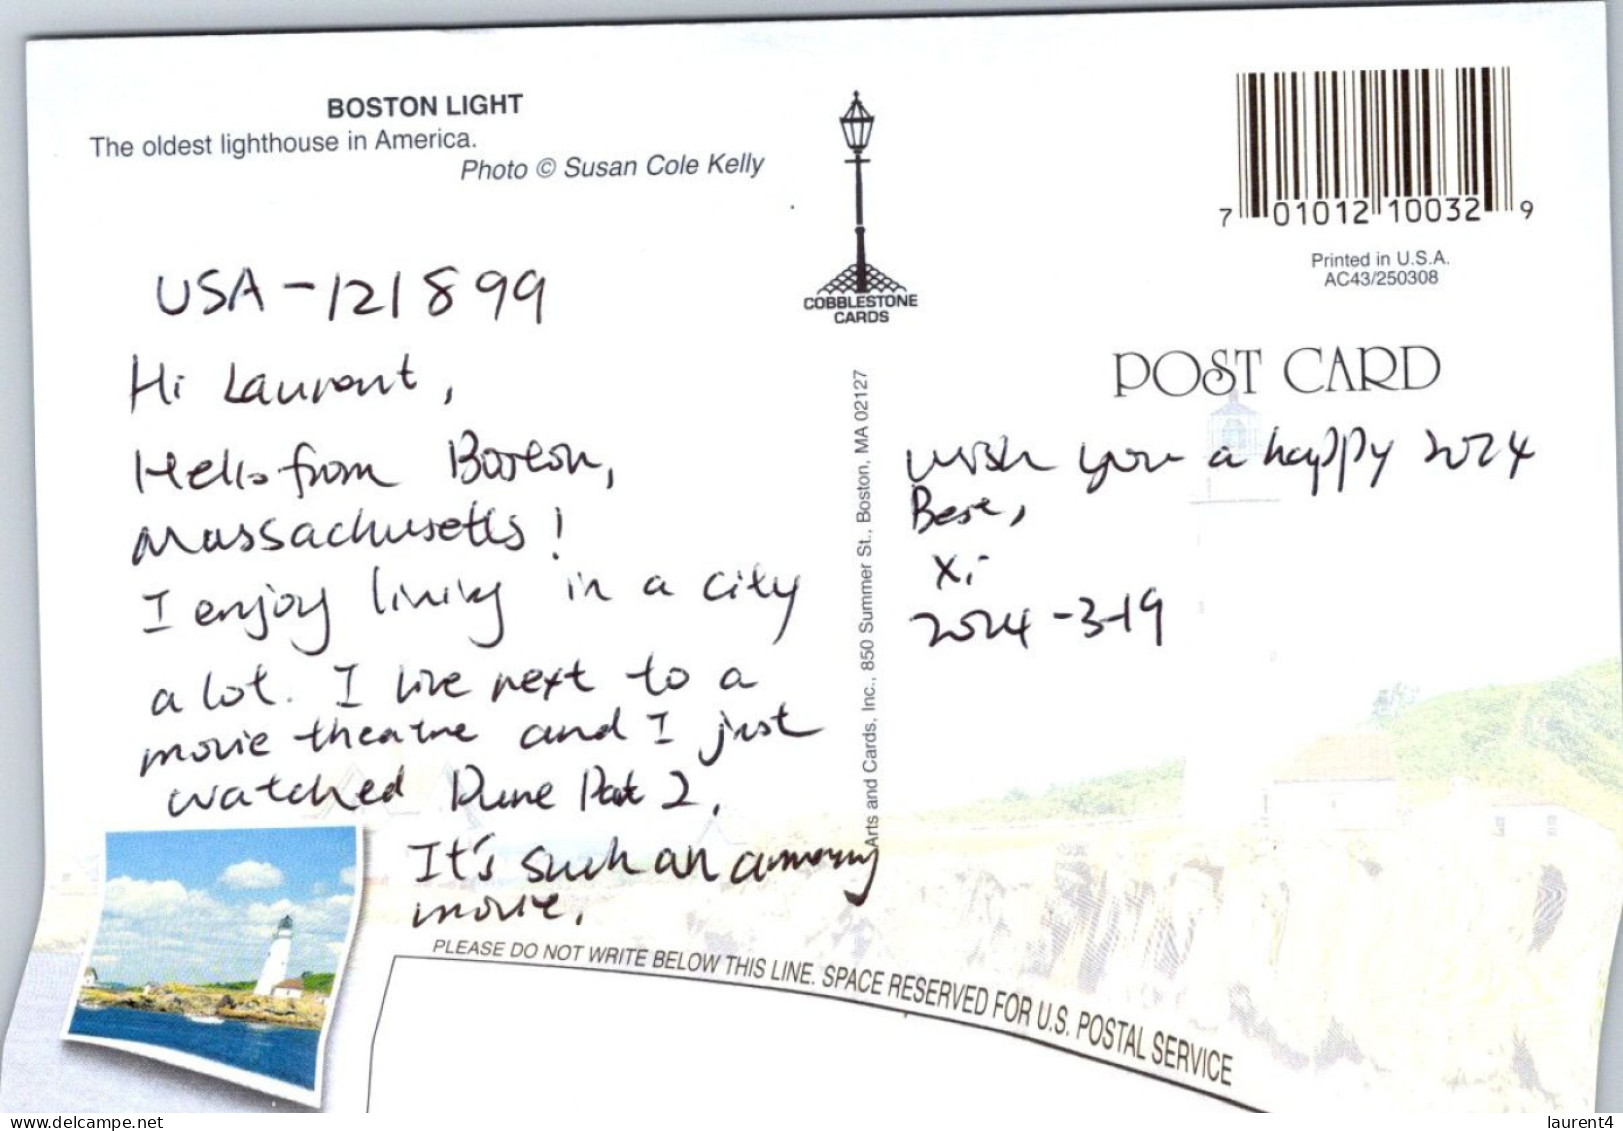 BOSTON LIGHT
The oldest lighthouse in America.
Photo © Susan Cole Kelly
USA-121899
Hi Laurent,
Hello from Boston,
Massachusetts!
I enjoy living in a city
a lot. I live next to a
movie theatre and I just
watched Dune Part 2.
It's such an amazing
movie.
COBBLESTONE
CARDS
Arts and Cards, Inc., 850 Summer St., Boston, MA 02127
7 01012 10032 9
Printed in U.S.A.
AC43/250308
POST CARD
Wish you a happy 2024
Best,
Xi
2024-3-19
PLEASE DO NOT WRITE BELOW THIS LINE. SPACE RESERVED FOR U.S. POSTAL SERVICE
www.delcampe.net
laurent4